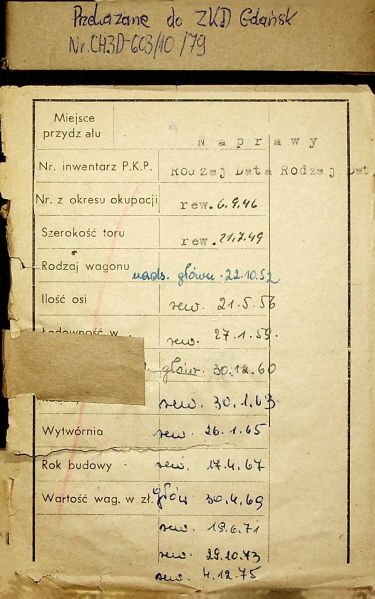 Przekazane do ZKD Gdańsk
Nr. CH3D-603/10/79
Miejsce
przydz ału
Naprawy
Nr. inwentarz P.K.P.
Rodzaj Data Rodzaj Dat
Nr. z okresu okupacji
rew. 6.9.46
Szerokość toru
rew. 21.7.49
Rodzaj wagonu
nads. główn. 22.10.52
Ilość osi
rew. 21.5.56
Ładowność w
rew. 27.1.59.
główn. 30.12.60
rew. 30.1.63
Wytwórnia
rew. 26.1.65
Rok budowy
rew. 17.4.67
Wartość wag. w zł.
głów 30.4.69
rew. 19.6.71
rew. 29.10.73
rew. 4.12.75